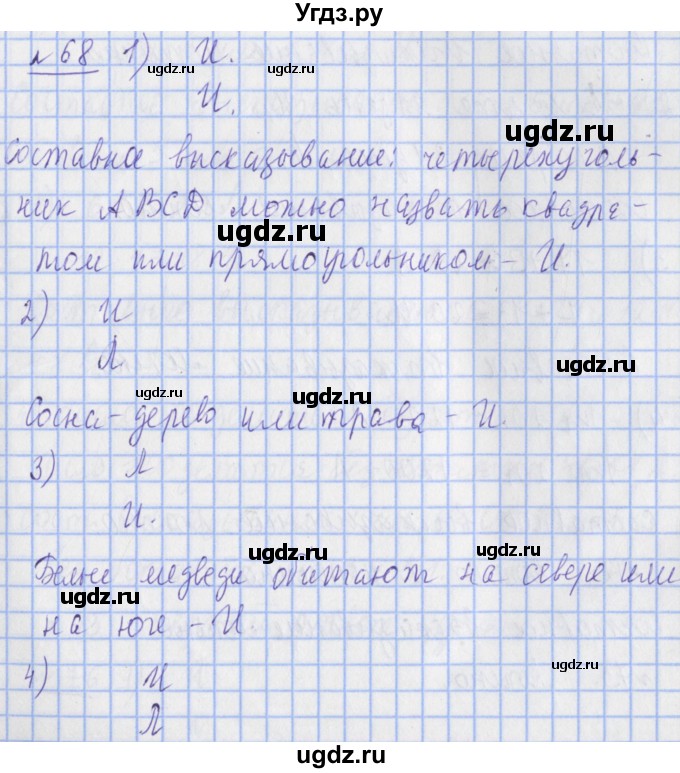 Угдз.ру
№ 68 1) И.
ugdz.ru ugdz.ru
И.
ugdz.ru
Составное высказывание: четырехуголь-
ник ABCD можно назвать квадра-
ugdz.ru
том или прямоугольником - И.
2) И
Л.
ugdz.ru
ugdz.ru ugdz.ru
Сосна - дерево или трава - И.
3) Л
И.
ugdz.ru ugdz.ru
Белые медведи обитают на севере или
ugdz.ru
на юге - И.
ugdz.ru
4) И
Л
ugdz.ru